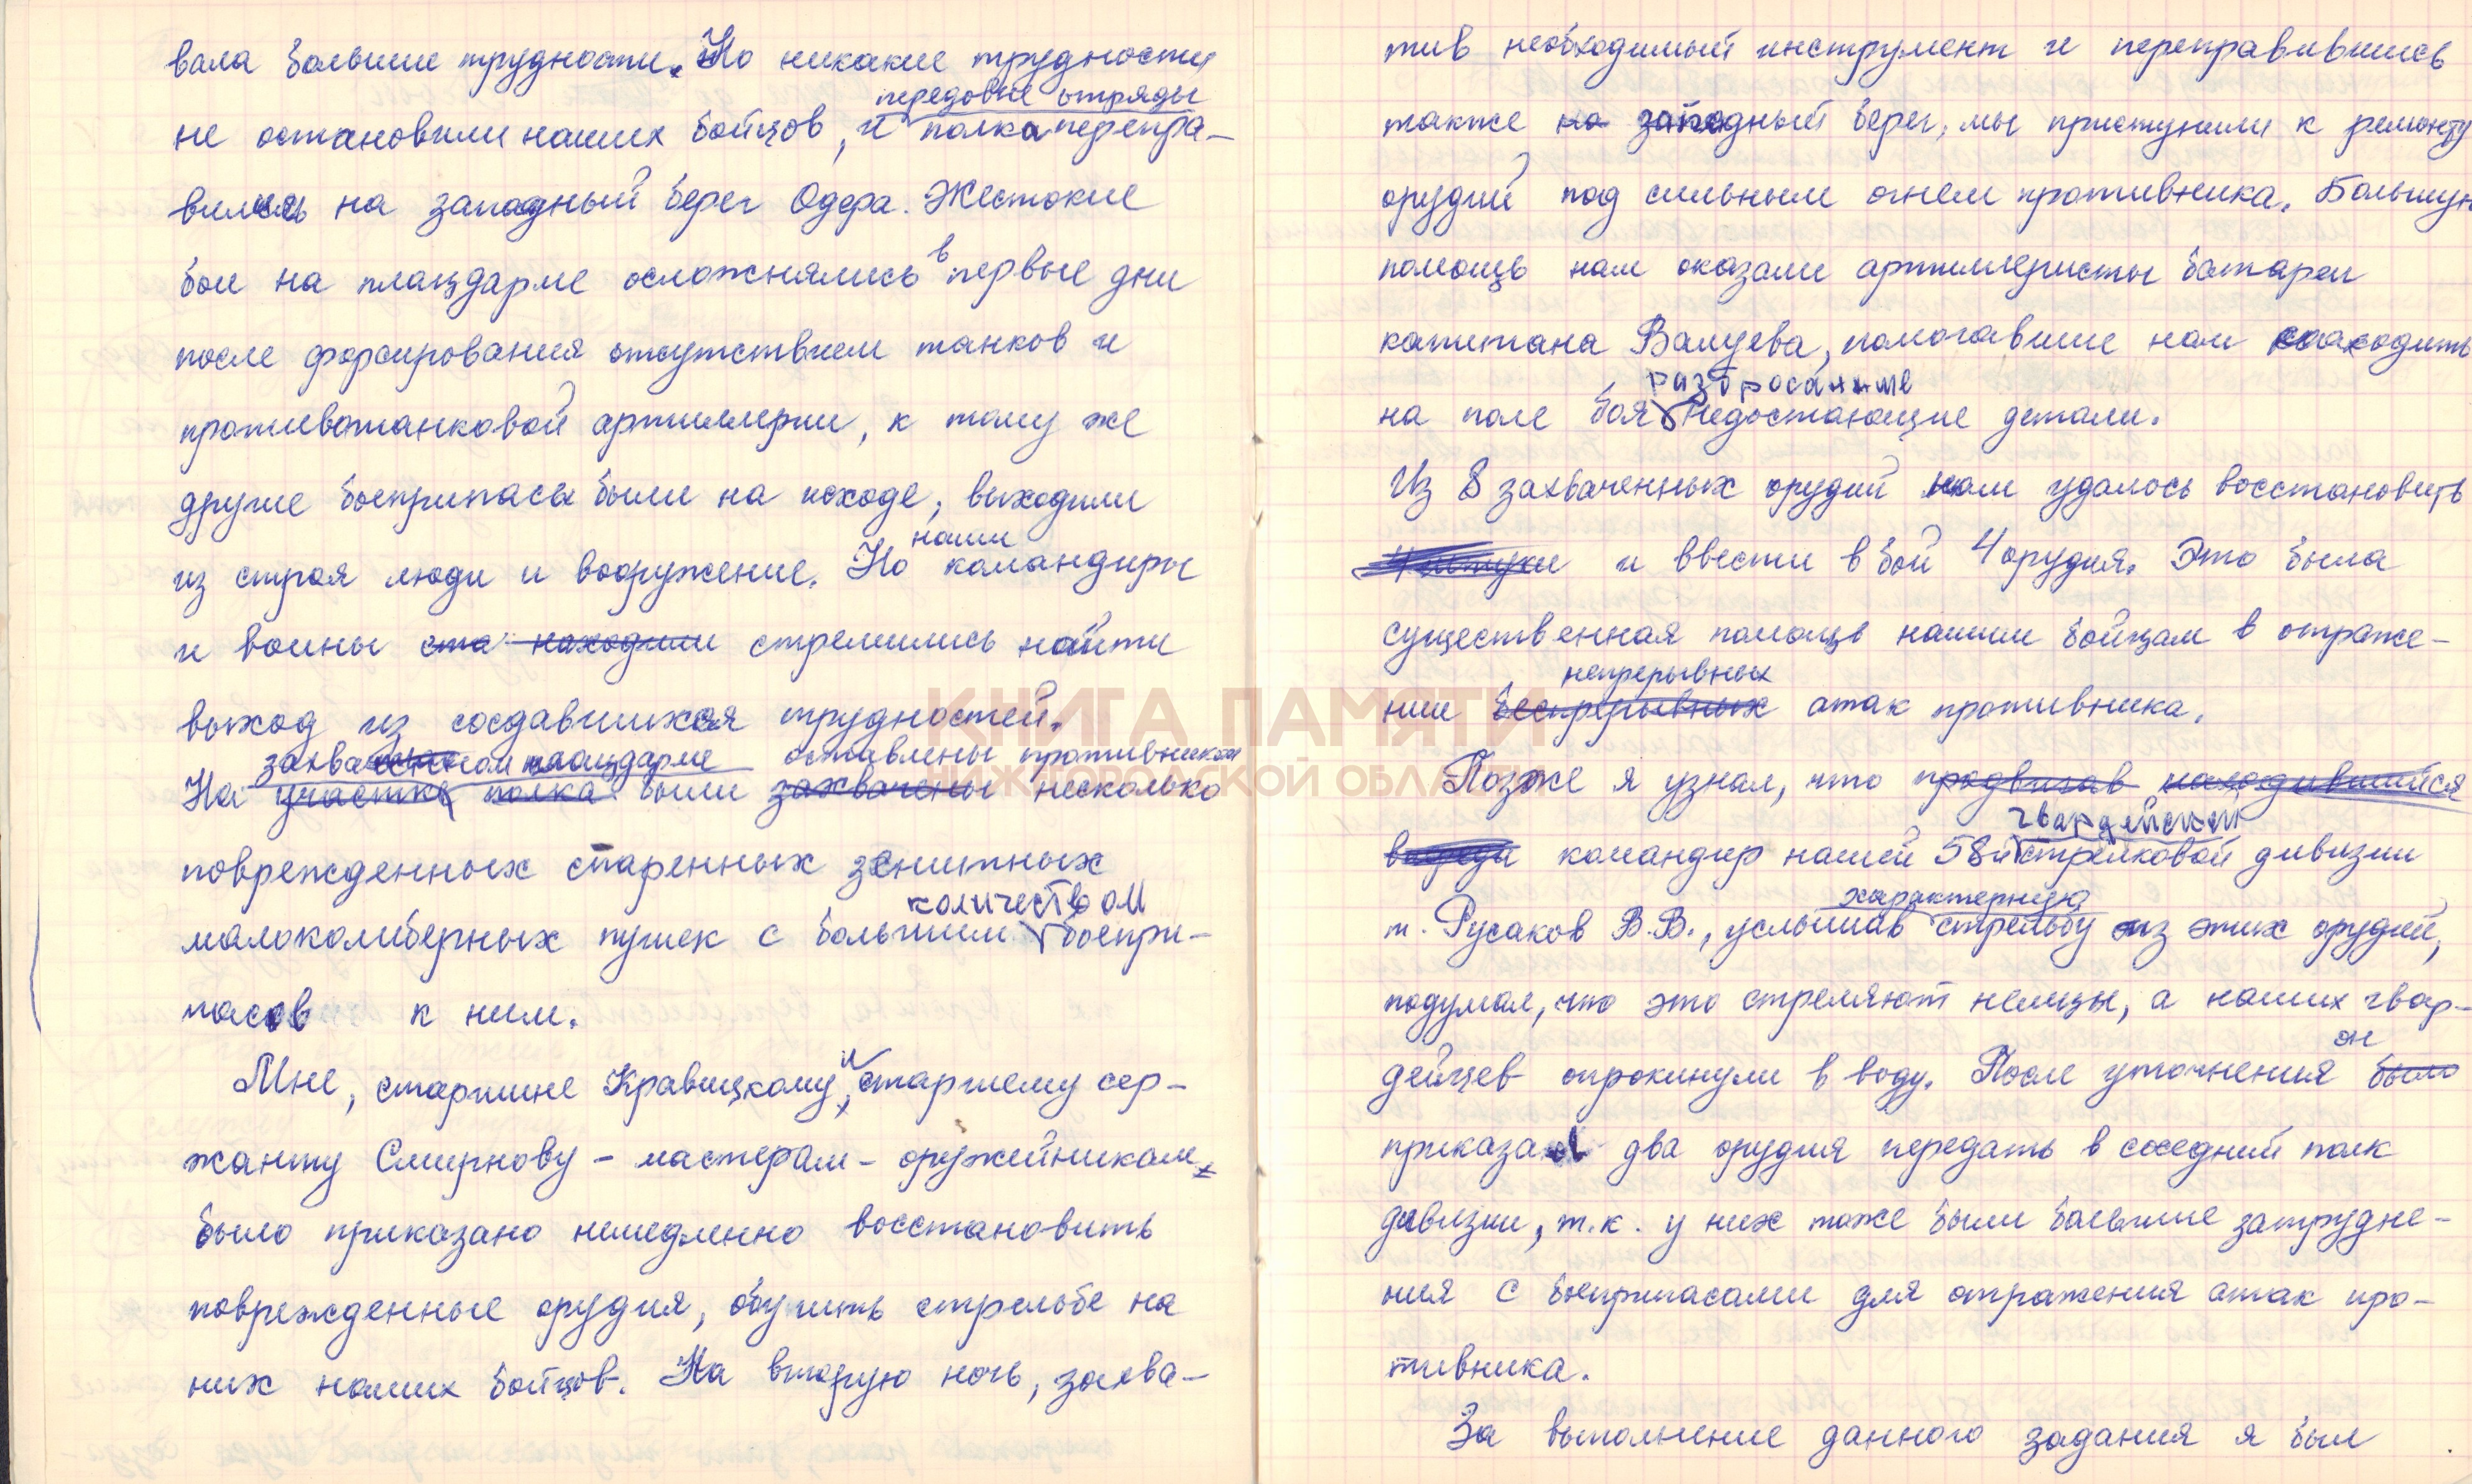 вала большие трудности. Но никакие трудности
передовые отряды
не остановили наших бойцов, и полка перепра-
вились на западный берег Одера. Жестокие
бои на плацдарме осложнялись в первые дни
после форсирования отсутствием танков и
противотанковой артиллерии, к тому же
другие боеприпасы были на исходе, выходили
наши
из строя люди и вооружение. Но командиры
и воины ста находили стремились найти
выход из создавшихся трудностей.
захваченном плацдарме оставлены противником
На участке полка были захвачены несколько
поврежденных спаренных зенитных
количеством
малокалиберных пушек с большим боепри-
пасов к ним.
Мне, старшине Кравицкому, и старшему сер-
жанту Смирнову - мастерам - оружейникам
было приказано немедленно восстановить
поврежденные орудия, обучить стрельбе на
них наших бойцов. На вторую ночь, захва-
тив необходимый инструмент и переправившись
также на западный берег, мы приступили к ремонту
орудий под сильным огнем противника. Большую
помощь нам оказали артиллеристы батареи
капитана Валуева, помогавшие нам находить
разбросанные
на поле боя недостающие детали.
Из 8 захваченных орудий нам удалось восстановить
4 штуки и ввести в бой 4 орудия. Это была
существенная помощь нашим бойцам в отраже-
непрерывных
нии беспрерывных атак противника.
Позже я узнал, что продвигав находившийся
гвардейской
впереди командир нашей 58й стрелковой дивизии
характерную
т. Русаков В.В., услышав стрельбу из этих орудий,
подумал, что это стреляют немцы, а наших гвар-
он
дейцев опрокинули в воду. После уточнения было
приказал два орудия передать в соседний полк
дивизии, т.к. у них тоже были большие затрудне-
ния с боеприпасами для отражения атак про-
тивника.
За выполнение данного задания я был
КНИГА ПАМЯТИ
НИЖЕГОРОДСКОЙ ОБЛАСТИ